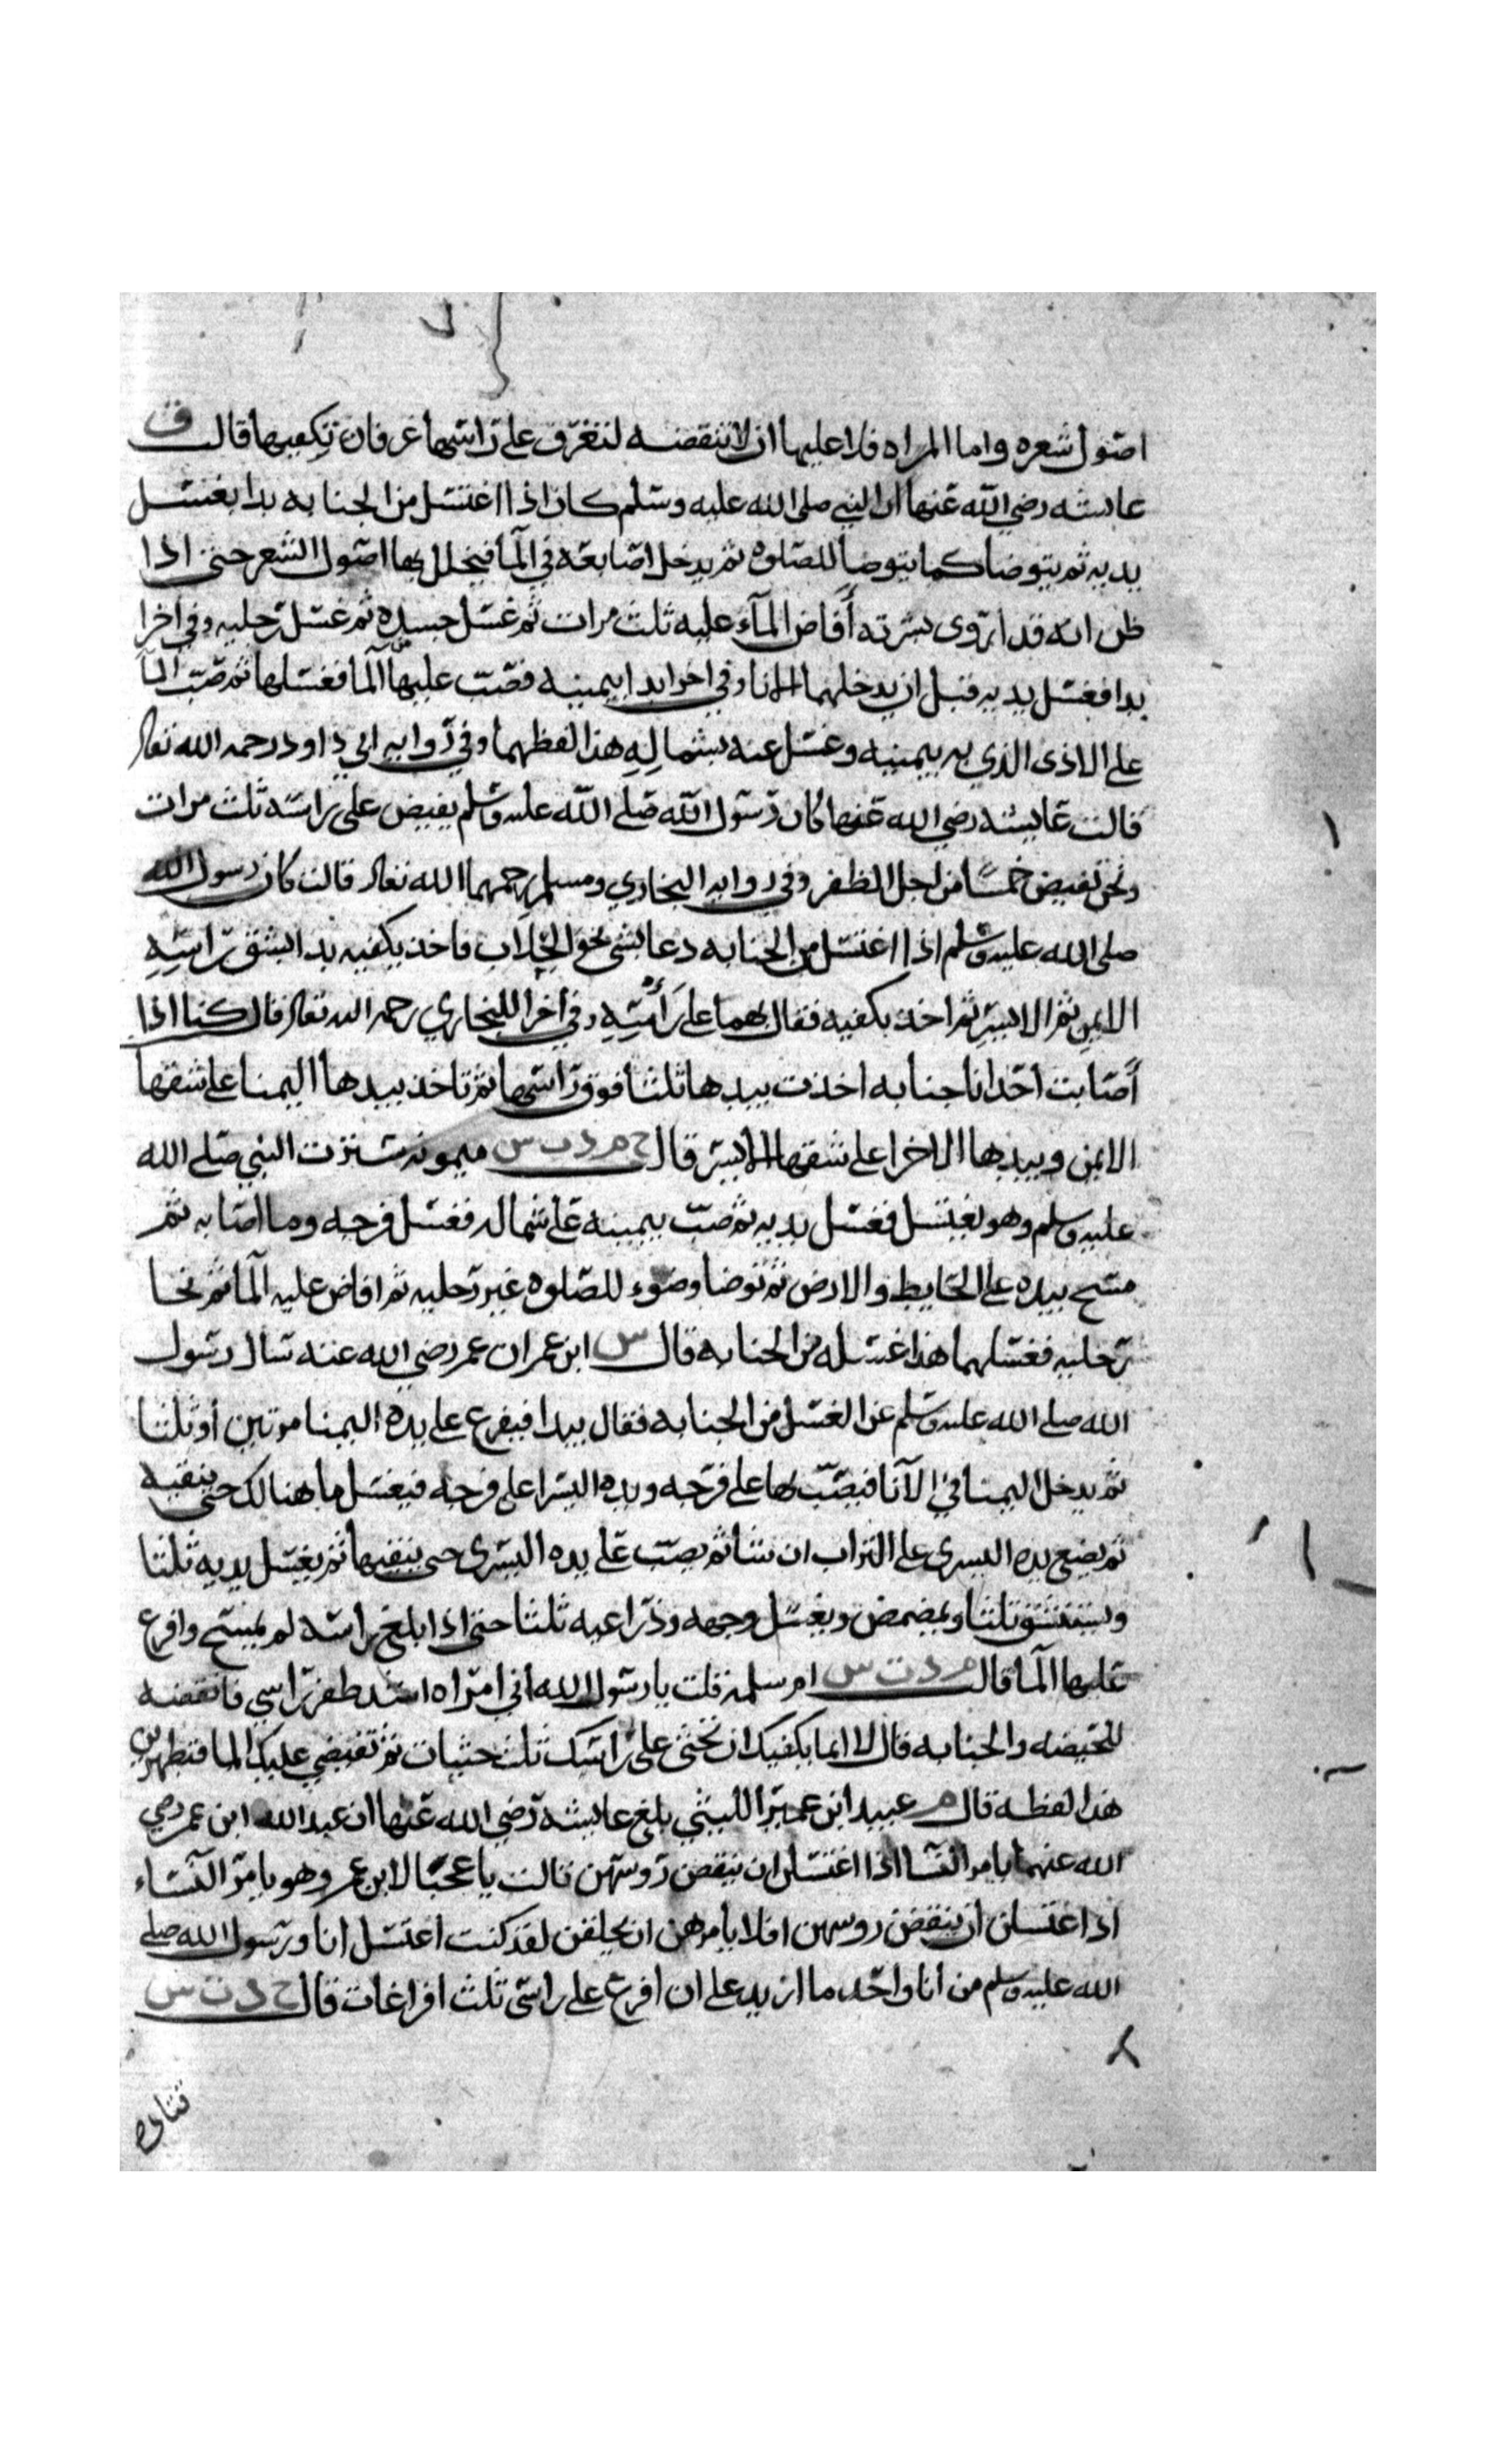 اصول شعره واما المراه فلا عليها ان لا تنقضه لتغرف على راسها غرفان تكفيها قالت ق
عايشه رضي الله عنها ان النبي صلى الله عليه وسلم كان اذا اغتسل من الجنابه بدا بغسل
يديه ثم يتوضا كما يتوضا للصلوه ثم يدخل اصابعه في المآ فيخلل بها اصول الشعر حتى اذا
ظن انه قد اروى بشرته أفاض المآء عليه ثلث مرات ثم غسل جسده ثم غسل رجليه وفي اخرا
بدا فغسل يديه قبل ان يدخلهما الانا وفي اخرا بدا بيمينه فصب عليها المآ فغسلها ثم صب المآ
على الاذى الذي به بيمينه وغسل عنه بشماله هذا لفظهما وفي روايه ابي داود رحمه الله تعالى
قالت عايشه رضي الله عنها كان رسول الله صلى الله عليه وسلم يفيض على راسه ثلث مرات
ونحن نفيض خمسا من اجل الظفر وفي روايه البخاري ومسلم رحمهما الله تعالى قالت كان رسول الله
صلى الله عليه وسلم اذا اغتسل من الجنابه دعا بشى نحو الحلاب فاخذ بكفيه بدا بشق راسه
الايمن ثم الايسر ثم اخذ بكفيه فقال بهما على راسه وفي اخرا للبخاري رحمه الله تعالى قال كنا اذا
أصابت احدانا جنابه اخذت بيدها ثلثا فوق راسها ثم تاخذ بيدها اليمنا على شقها
الايمن وبيدها الاخرا على شقها الايسر قال خ م د ت س ميمونه سترت النبي صلى الله
عليه وسلم وهو يغتسل فغسل يديه ثم صب بيمينه على شماله فغسل فرجه وما اصابه ثم
مسح بيده على الحايط والارض ثم توضا وضوء للصلوه غير رجليه ثم افاض عليه المآ ثم نحا
رجليه فغسلهما هذا غسله من الجنابه قال س ابن عمر ان عمر رضي الله عنه سال رسول
الله صلى الله عليه وسلم عن الغسل من الجنابه فقال يبدا فيفرغ على يده اليمنا مرتين أو ثلثا
ثم يدخل اليمنا في الآنا فيصب بها على فرجه ويده اليسرا على فرجه فيغسل ما هنالك حتى ينقيه
ثم يضع يده اليسرى على التراب ان شا ثم يصب على يده اليسرى حتى ينقيها ثم يغسل يديه ثلثا
ويستنشق ثلثا ويمضمض ويغسل وجهه وذراعيه ثلثا حتى اذا بلغ راسه لم يمسح وافرغ
عليها المآ قالت م د ت س ام سلمه قلت يا رسول الله اني امراه اشد ظفر راسي فانقضه
للحيضه والجنابه قال لا انما يكفيك ان تحثى على راسك ثلث حثيات ثم تفيضي عليك الما فتطهرين
هذا لفظه قال م عبيد ابن عمير الليثي بلغ عايشة رضي الله عنها ان عبد الله ابن عمر رضي
الله عنهما يامر النسا اذا اغتسلن ان ينقضن روسهن قالت يا عجبا لابن عمر وهو يامر النساء
اذا اغتسلن ان ينقضن روسهن افلا يامرهن ان يحلقن لقد كنت اغتسل انا ورسول الله صلى
الله عليه وسلم من انا واحد ما ازيد على ان افرغ على راسى ثلث افراغات قال خ د ت س